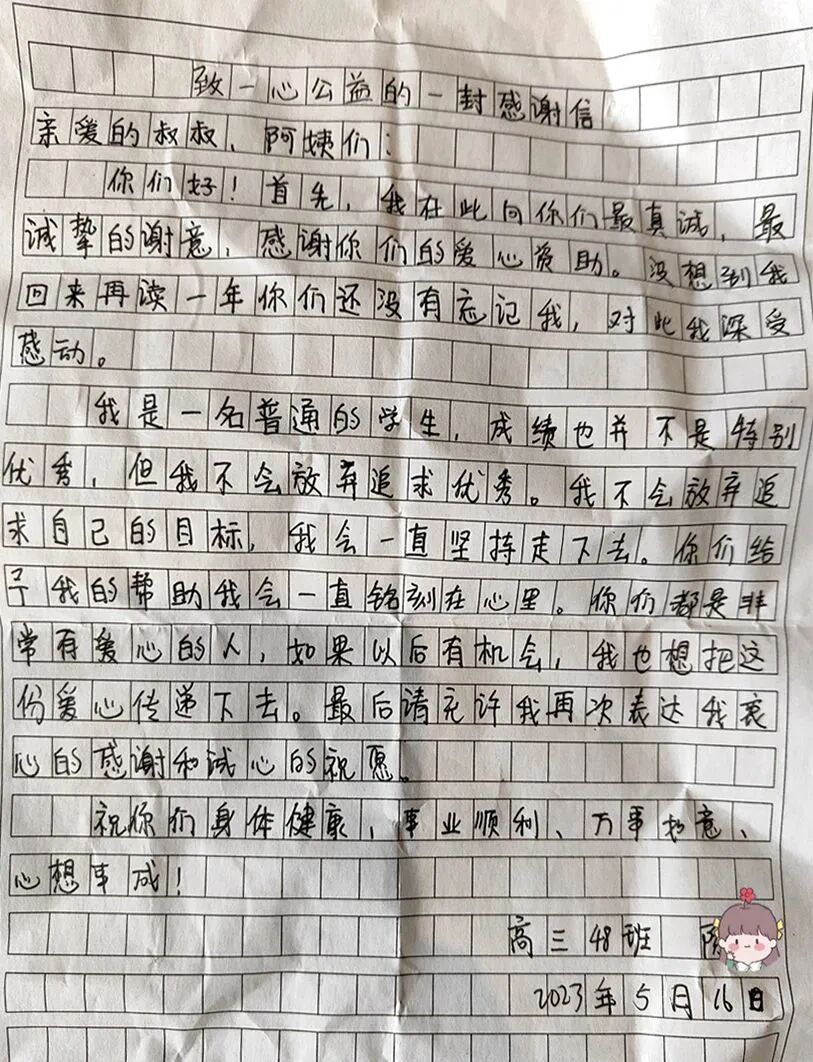 致一心公益的一封感谢信
亲爱的叔叔、阿姨们：
你们好！首先，我在此向你们最真诚、最
诚挚的谢意，感谢你们的爱心资助。没想到我
回来再读一年你们还没有忘记我，对此我深受
感动。
我是一名普通的学生，成绩也并不是特别
优秀，但我不会放弃追求优秀。我不会放弃追
求自己的目标，我会一直坚持走下去。你们给
予我的帮助我会一直铭刻在心里。你们都是非
常有爱心的人，如果以后有机会，我也想把这
份爱心传递下去。最后请允许我再次表达我衷
心的感谢和诚心的祝愿。
祝你们身体健康、事业顺利、万事如意、
心想事成！
高三48班
2023年5月16日